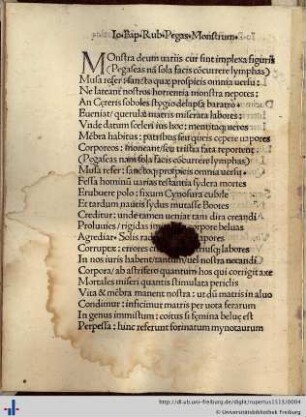 Io· Bap· Rub· Pegas· Monstrum·
MOnstra deum uariis cur sint implexa figuris
(Pegaseas nã sola facis cõcurrere lymphas)
Musa refer: que prospicis omnia uersu:
Ne lateant nostros horrenda monstra nepotes:
An Cereris soboles stygio delapsa baratro
Eueniat/ querula matris miserata labores:
Vnde datum sceleri ius hoc: mentitaq; ueros
Mẽbra habitus: patribus seu queis cepere uapores
Corporeos: moneant/seu tristia fata reportent
(Pegaseas nam sola facis cõcurrere lymphas)
Musa refer: prospicis omnia uersu:
Fessa hominũ uarios testantia sydera mortes
Erubuere polo: fixum Cynosura cubile
Et tardum nauis sydus mutasse Bootes
Creditur: unde tamen ueniat tam dira creandi
Proluuies/ rigidas corpore beluas
Agrediar· Solis uapores
Corrupta: errores labores
In nos iuris habent/ nostra necandi
Corpora/ ab astrifero quantum hos qui corrigit axe
Mortales miseri quantis stimulata periclis
Vita & mẽbra manent nostra: ut dũ matris in aluo
Condimur: inficimur matris per uota ferarum
In genus immistum: coitus si fœmina beluę est
Perpessa: hunc referunt formatum mynotaurum
http://dl.ub.uni-freiburg.de/diglit/rupertus1510/0004
© Universitätsbibliothek Freiburg